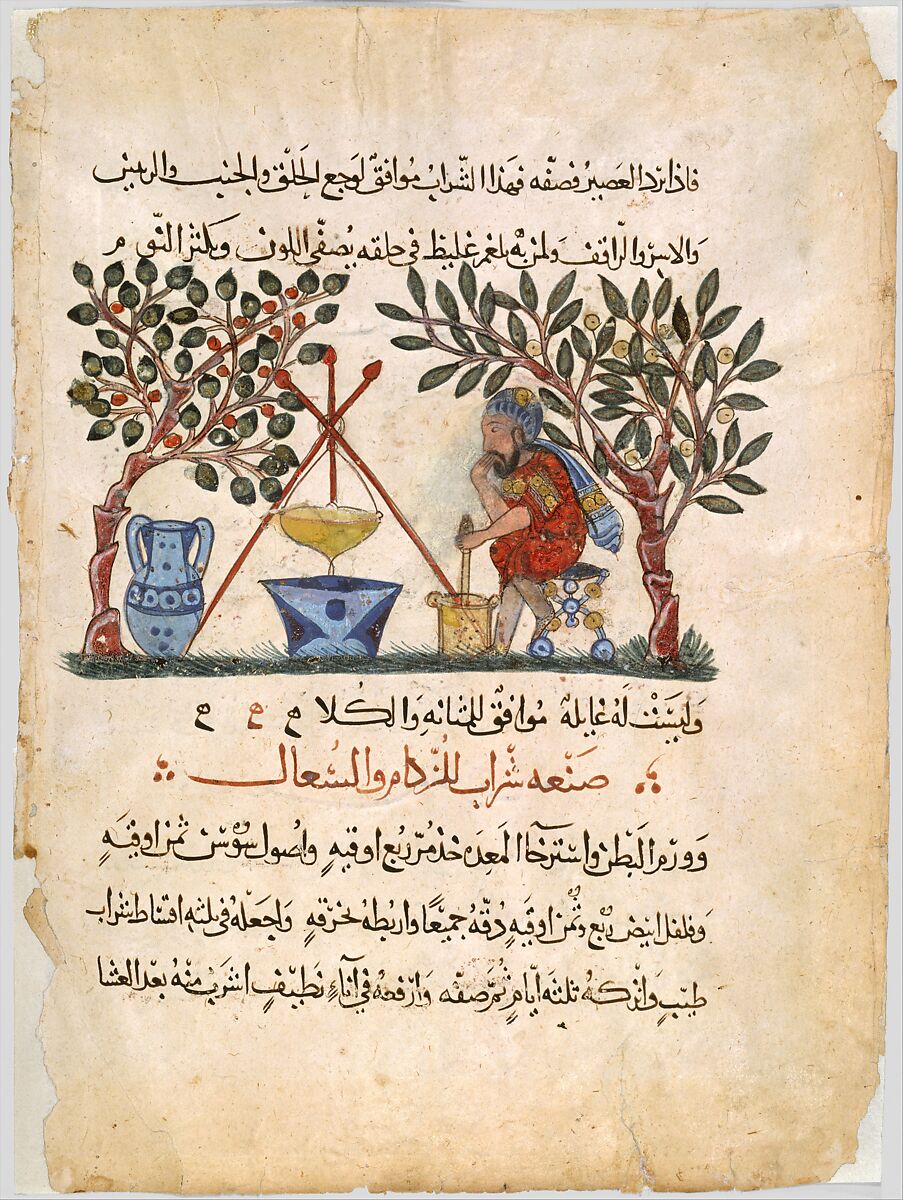 فاذا برد العصير فصفّه فهذا الشّراب مُوافقٌ لوجع الحَلق والجنب والرئتين
والاسر والرّاقف ولمن به بلغم غليظ في حلقه يُصفّي اللون ويكثر النّوم
وليسَتْ لهُ غايلة مُوافقٌ للمثانه والكلا ح ح ح
صَنْعه شراب للزكام والسُعال
وَورم البَطن واسترخا المعدَه خذ مُرّ رُبع اوقيهٍ واصُول سُوْسن ثمن اوقيَهٍ
وفلفل ابيض رُبع وثُمن اوقيَهٍ دُقّهُ جميعًا واربطهُ بخرقهٍ وَاجعَلهُ في ثلثه اقساط شراب
طيّبٍ وَاتركهُ ثلثَه ايّامٍ ثُمّ صفّه وَارفعهُ في اناءٍ نظيفٍ اشرب منهُ بعد العشا